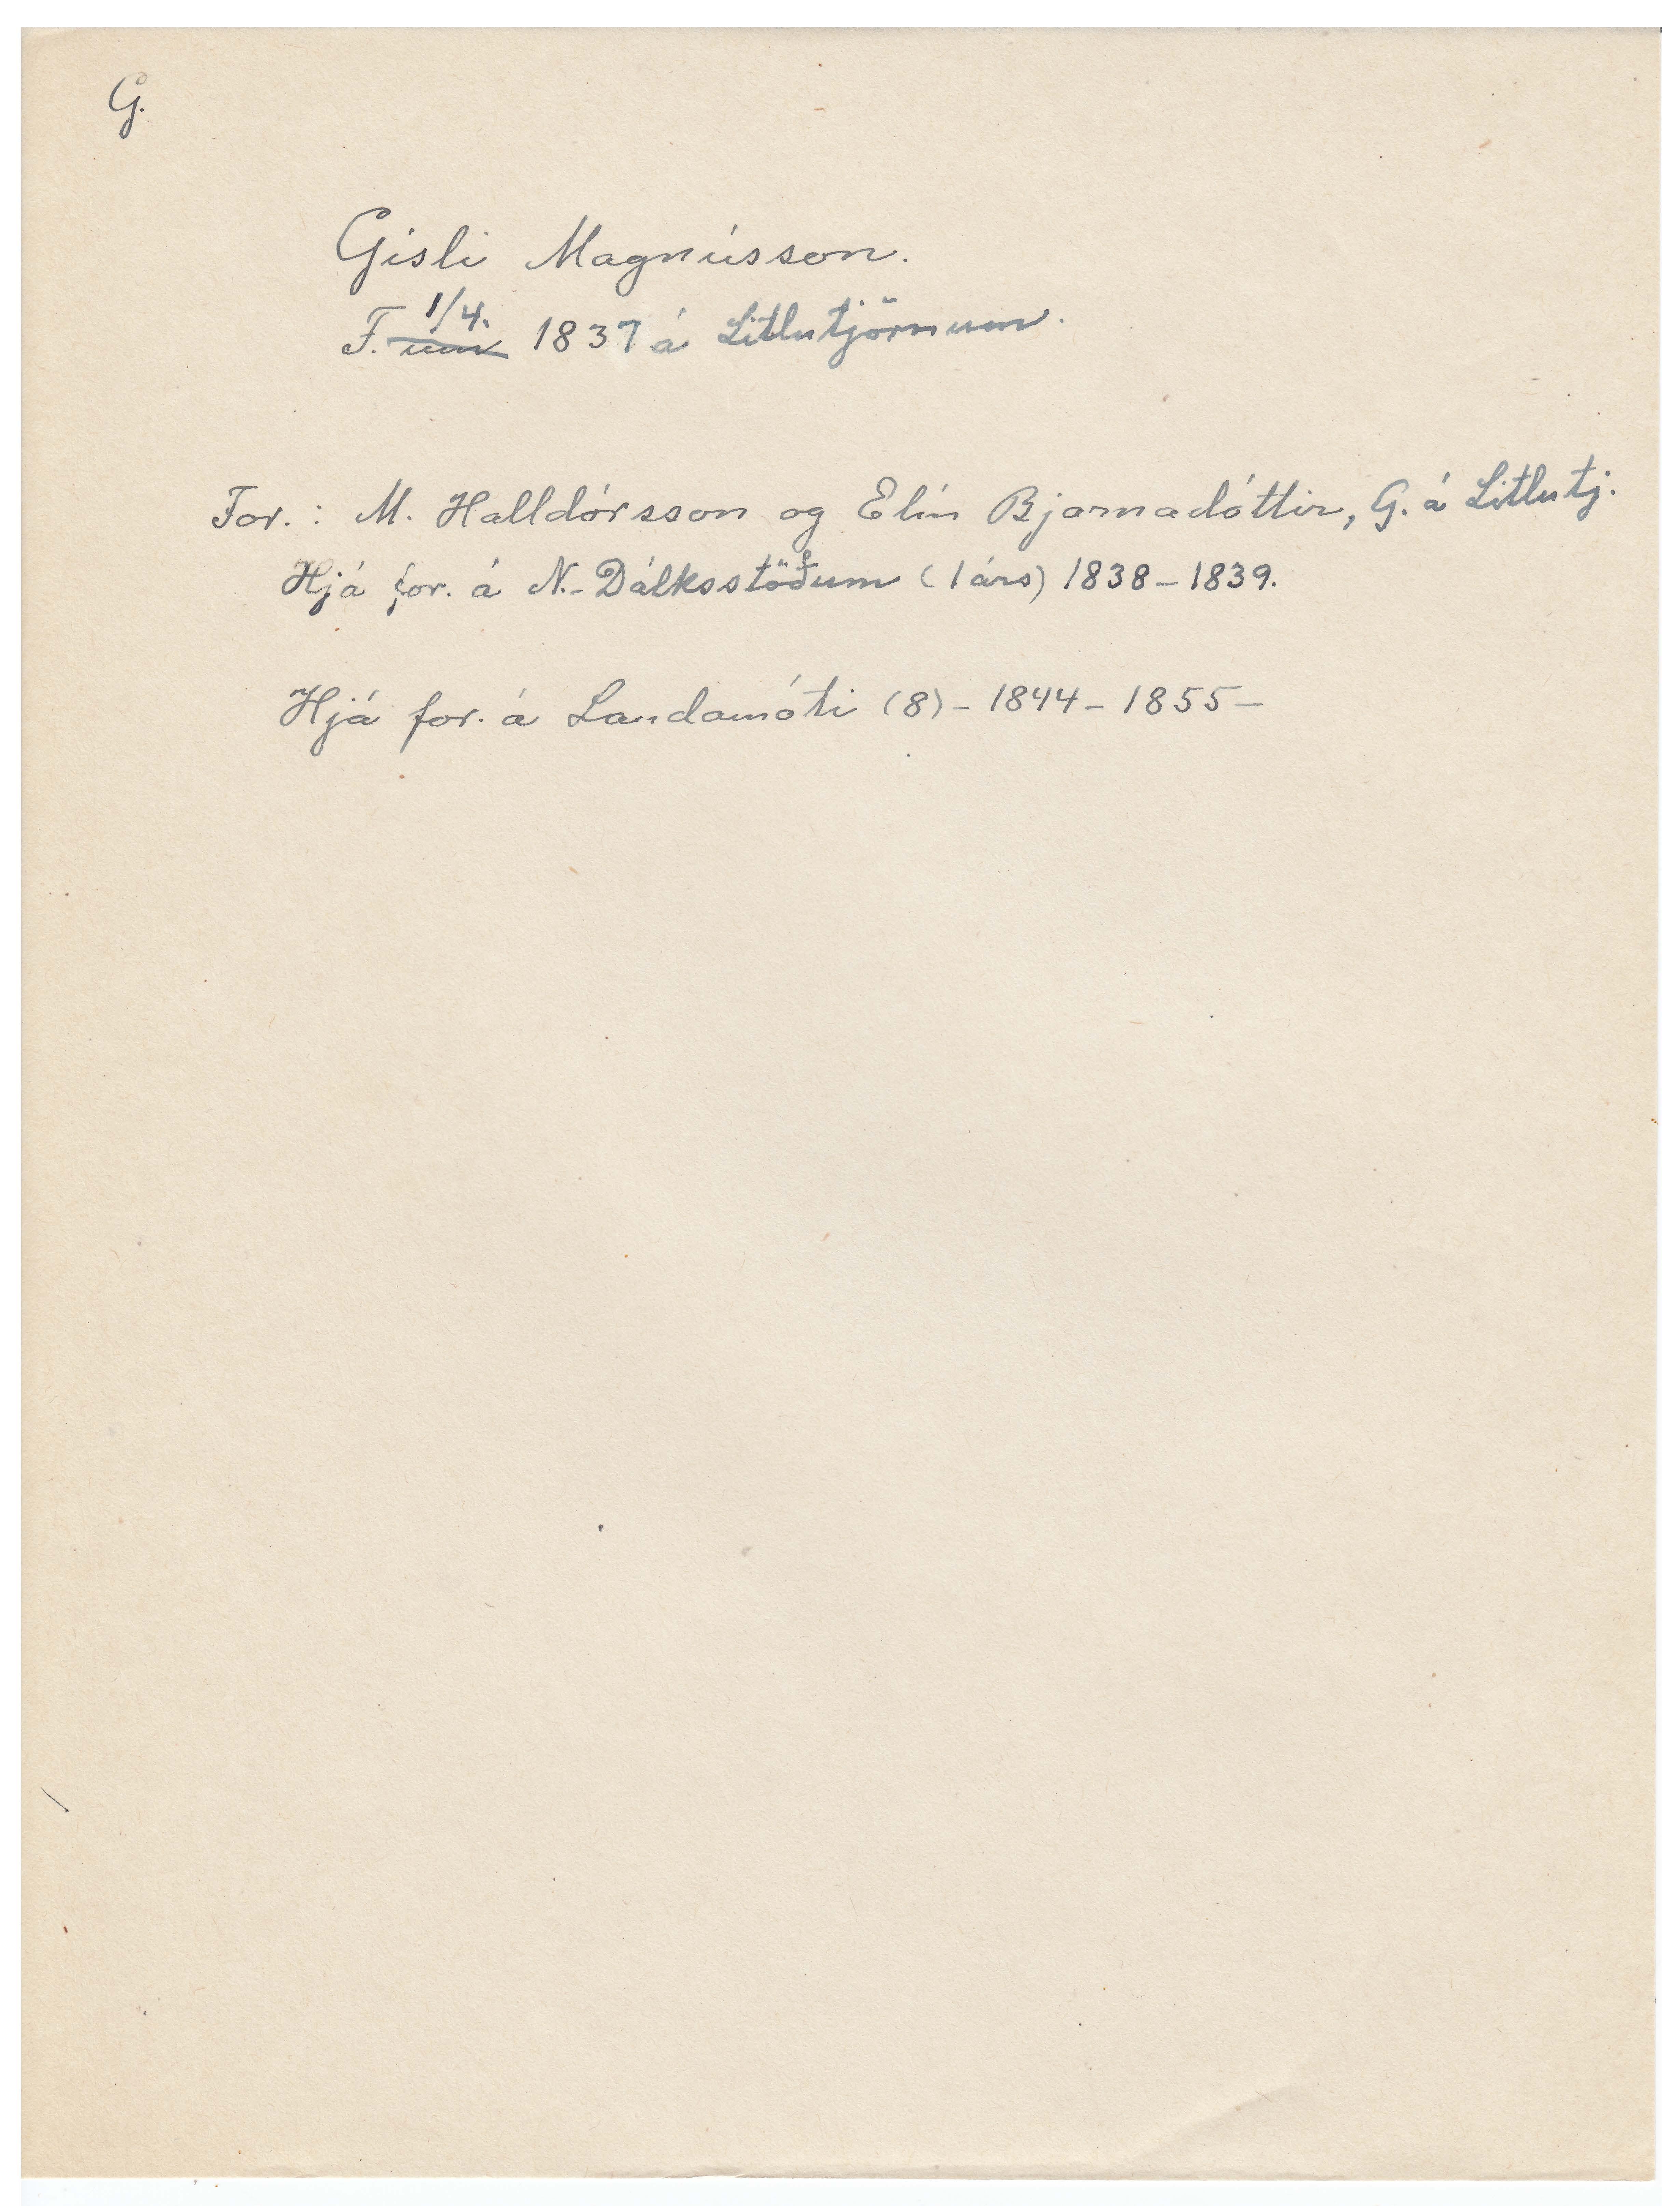 G.
Gísli Magnússon.
F. um 1/4. 1837 á Litlutjörnum.
For.: M. Halldórsson og Elín Bjarnadóttir, G. á Litlutj.
Hjá for. á N.-Dálksstöðum (1 árs) 1838-1839.
Hjá for. á Landamóti (8) - 1844 - 1855 -